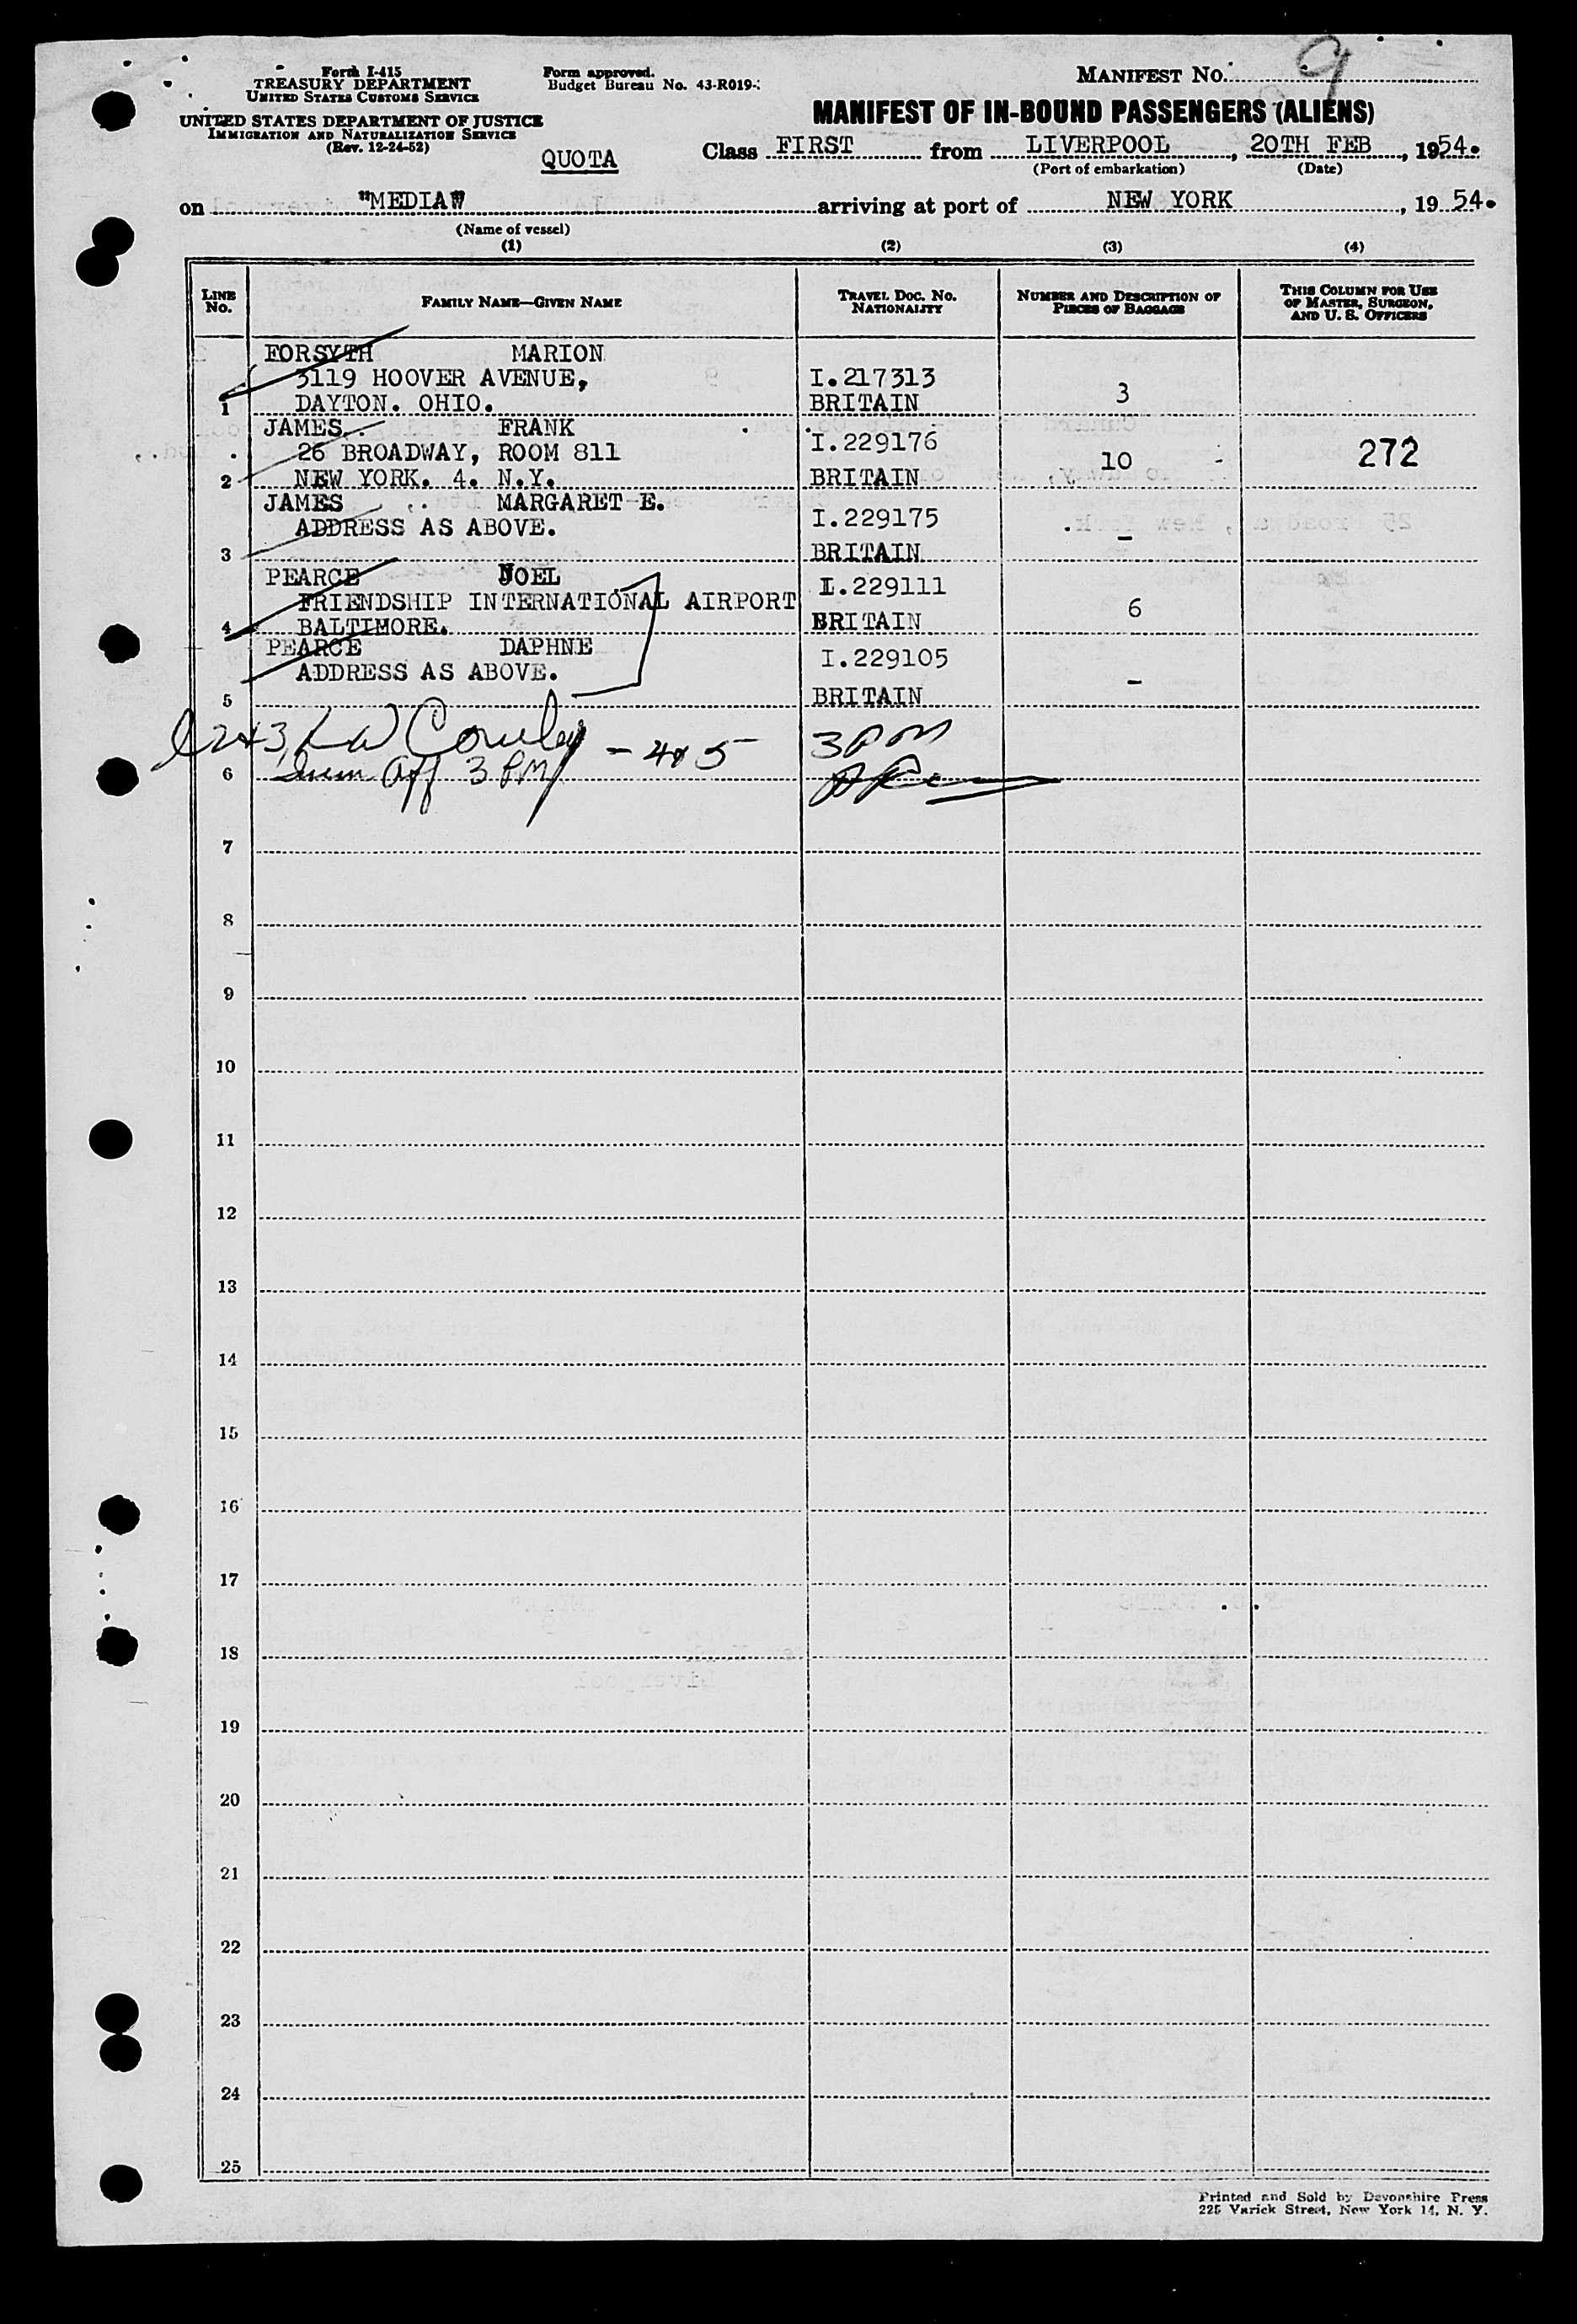 Form I-415
TREASURY DEPARTMENT
UNITED STATES CUSTOMS SERVICE
UNITED STATES DEPARTMENT OF JUSTICE
IMMIGRATION AND NATURALIZATION SERVICE
(Rev. 12-24-52)
Form approved.
Budget Bureau No. 43-R019-
MANIFEST No. 9
MANIFEST OF IN-BOUND PASSENGERS (ALIENS)
QUOTA Class FIRST from LIVERPOOL, 20TH FEB, 1954.
(Port of embarkation) (Date)
on "MEDIA" arriving at port of NEW YORK, 1954.
(Name of vessel)
(1) (2) (3) (4)
LINE No. FAMILY NAME—GIVEN NAME TRAVEL DOC. No. NATIONALITY NUMBER AND DESCRIPTION OF PIECES OF BAGGAGE THIS COLUMN FOR USE OF MASTER, SURGEON, AND U. S. OFFICERS
FORSYTH MARION
3119 HOOVER AVENUE, I.217313
1 DAYTON. OHIO. BRITAIN 3
JAMES FRANK
26 BROADWAY, ROOM 811 I.229176 272
2 NEW YORK. 4. N.Y. BRITAIN 10 -
JAMES MARGARET E.
ADDRESS AS ABOVE. I.229175
3 BRITAIN -
PEARCE NOEL
FRIENDSHIP INTERNATIONAL AIRPORT I.229111
4 BALTIMORE. BRITAIN 6
PEARCE DAPHNE
ADDRESS AS ABOVE. I.229105
5 BRITAIN -
- 4 5 3 PM
6 Off 3 PM
7
8
9
10
11
12
13
14
15
16
17
18
19
20
21
22
23
24
25
Printed and Sold by Devonshire Press
225 Varick Street, New York 14, N. Y.